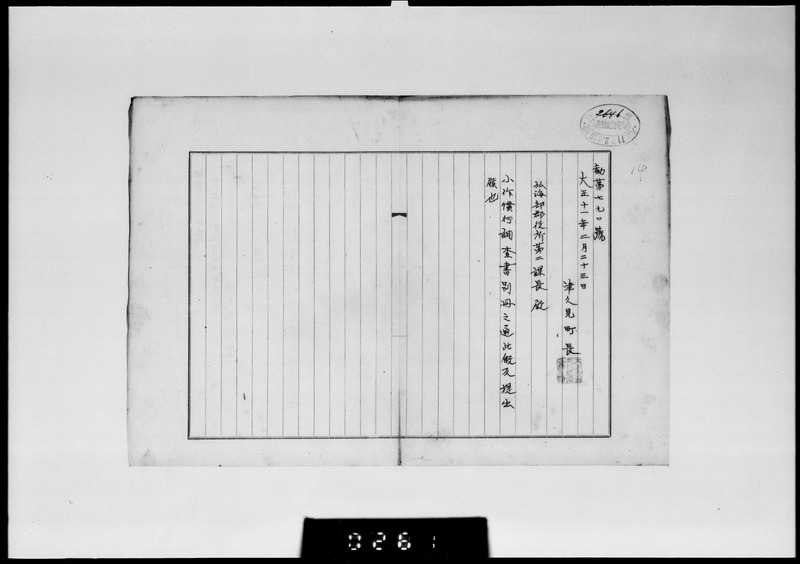 勧第七九〇號
大正十一年二月二十三日
津久見町長
北海部郡役所第二課長殿
小作慣行調査書別冊之通此段及提出
候也
2646
14
0261